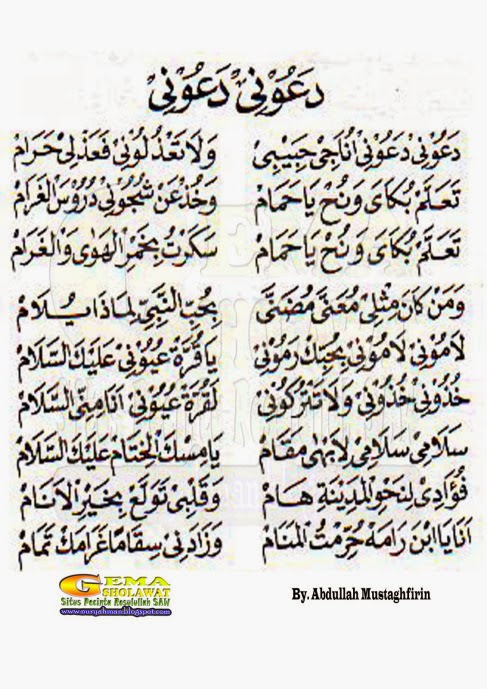 دَعُوْنِيْ دَعُوْنِيْ
دَعُوْنِيْ دَعُوْنِيْ أُنَاجِيْ حَبِيْبِيْ وَلَا تَعْذُلُوْنِيْ فَعَذْلِيْ حَرَامْ
تَعَلَّمْ بُكَايَ وَنُحْ يَاحَمَامْ وَخُذْ عَنْ شُجُوْنِيْ دُرُوْسَ الْغَرَامْ
تَعَلَّمْ بُكَايَ وَنُحْ يَاحَمَامْ سَكَرْتُ بِخَمْرِ الْهَوٰى وَالْغَرَامْ
وَمَنْ كَانَ مِثْلِيْ مُعَنَّى مُضَنَّى بِحُبِّ النَّبِيِّ لِمَاذَا يُلَامْ
لَامُوْنِيْ لَامُوْنِيْ بِحُبِّكَ رَمَوْنِيْ يَاقُرَّةَ عُيُوْنِيْ عَلَيْكَ السَّلَامْ
خُذُوْنِيْ خُذُوْنِيْ وَلَا تَتْرُكُوْنِيْ لِقُرَّةِ عُيُوْنِيْ اَنَا مِنِّى السَّلَامْ
سَلَامِيْ سَلَامِيْ لِاَبْهٰى مَقَامْ يَامِسْكَ الْخِتَامْ عَلَيْكَ السَّلَامْ
فُؤَادِيْ لِنَحْوِ الْمَدِيْنَةِ هَامْ وَقَلْبِيْ تَوَلَّعْ بِخَيْرِ الْاَنَامْ
اَنَا يَا ابْنَ رَامَهْ حُرِّمْتُ الْمَنَامْ وَزَادَنِيْ سِقَامًا غَرَامُكْ تَمَامْ
GEMA
SHOLAWAT
Situs Pecinta Rosulullah SAW
www.nuryahman.blogspot.com
By. Abdullah Mustaghfirin